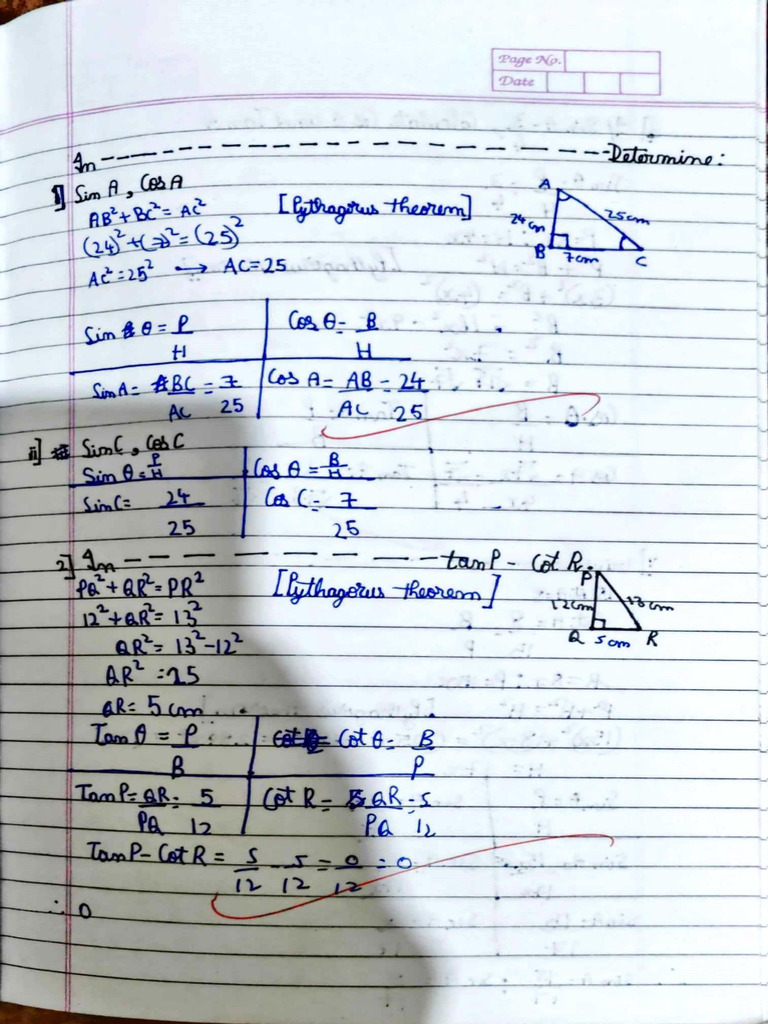 Page No.
Date
In --------------------- Determine:
1] Sin A, Cos A
AB² + BC² = AC² [Pythagorus theorem]
(24)² + (7)² = (25)²
AC² = 25² → AC = 25
A
24cm 25cm
B 7cm C
Sin θ = P/H Cos θ = B/H
Sin A = BC/AC = 7/25 Cos A = AB/AC = 24/25
ii] Sin C, Cos C
Sin θ = P/H Cos θ = B/H
Sin C = 24/25 Cos C = 7/25
2] In ------------ tan P - Cot R.
PQ² + QR² = PR² [Pythagorus theorem]
12² + QR² = 13²
QR² = 13² - 12²
QR² = 25
QR = 5 cm
P
12cm 13 cm
Q 5cm R
Tan θ = P/B Cot θ = B/P
Tan P = QR/PQ = 5/12 Cot R = QR/PQ = 5/12
Tan P - Cot R = 5/12 - 5/12 = 0/12 = 0
∴ 0